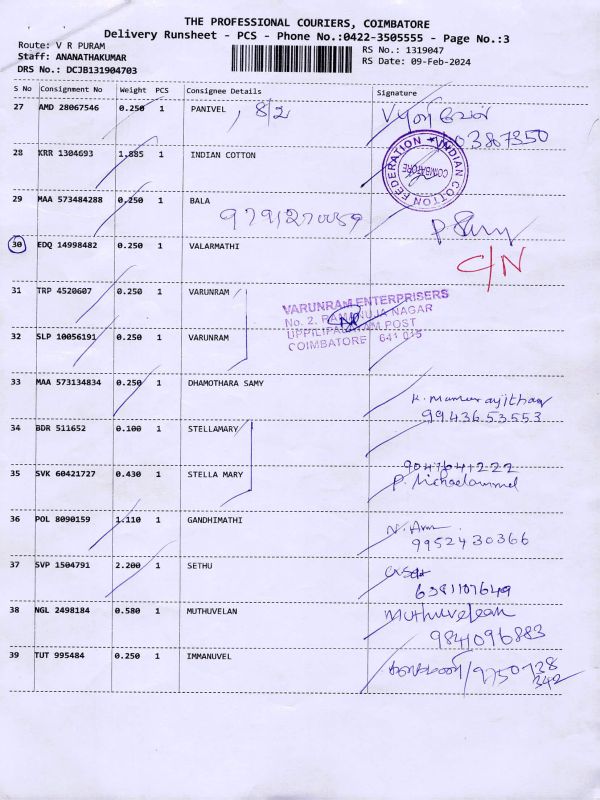 THE PROFESSIONAL COURIERS, COIMBATORE
Delivery Runsheet - PCS - Phone No.:0422-3505555 - Page No.:3
Route: V R PURAM
Staff: ANANATHAKUMAR
DRS No.: DCJB131904703
RS No.: 1319047
RS Date: 09-Feb-2024
S No Consignment No Weight PCS Consignee Details Signature
27 AMD 28067546 0.250 1 PANIVEL 8/2
28 KRR 1304693 1.885 1 INDIAN COTTON
INDIAN COTTON FEDERATION
COIMBATORE
29 MAA 573484288 0.250 1 BALA
9791270059
30 EDQ 14998482 0.250 1 VALARMATHI C/N
31 TRP 4520607 0.250 1 VARUNRAM
VARUNRAM ENTERPRISERS
No. 2, RAMANUJA NAGAR
UPPILIPALAYAM POST
COIMBATORE 641 015
32 SLP 10056191 0.250 1 VARUNRAM
33 MAA 573134834 0.250 1 DHAMOTHARA SAMY
9943653553
34 BDR 511652 0.100 1 STELLAMARY
9047641222
35 SVK 60421727 0.430 1 STELLA MARY
36 POL 8090159 1.110 1 GANDHIMATHI
9952430366
37 SVP 1504791 2.200 1 SETHU
6381107649
38 NGL 2498184 0.580 1 MUTHUVELAN Muthuvelan
9841096883
39 TUT 995484 0.250 1 IMMANUVEL 9750728
342